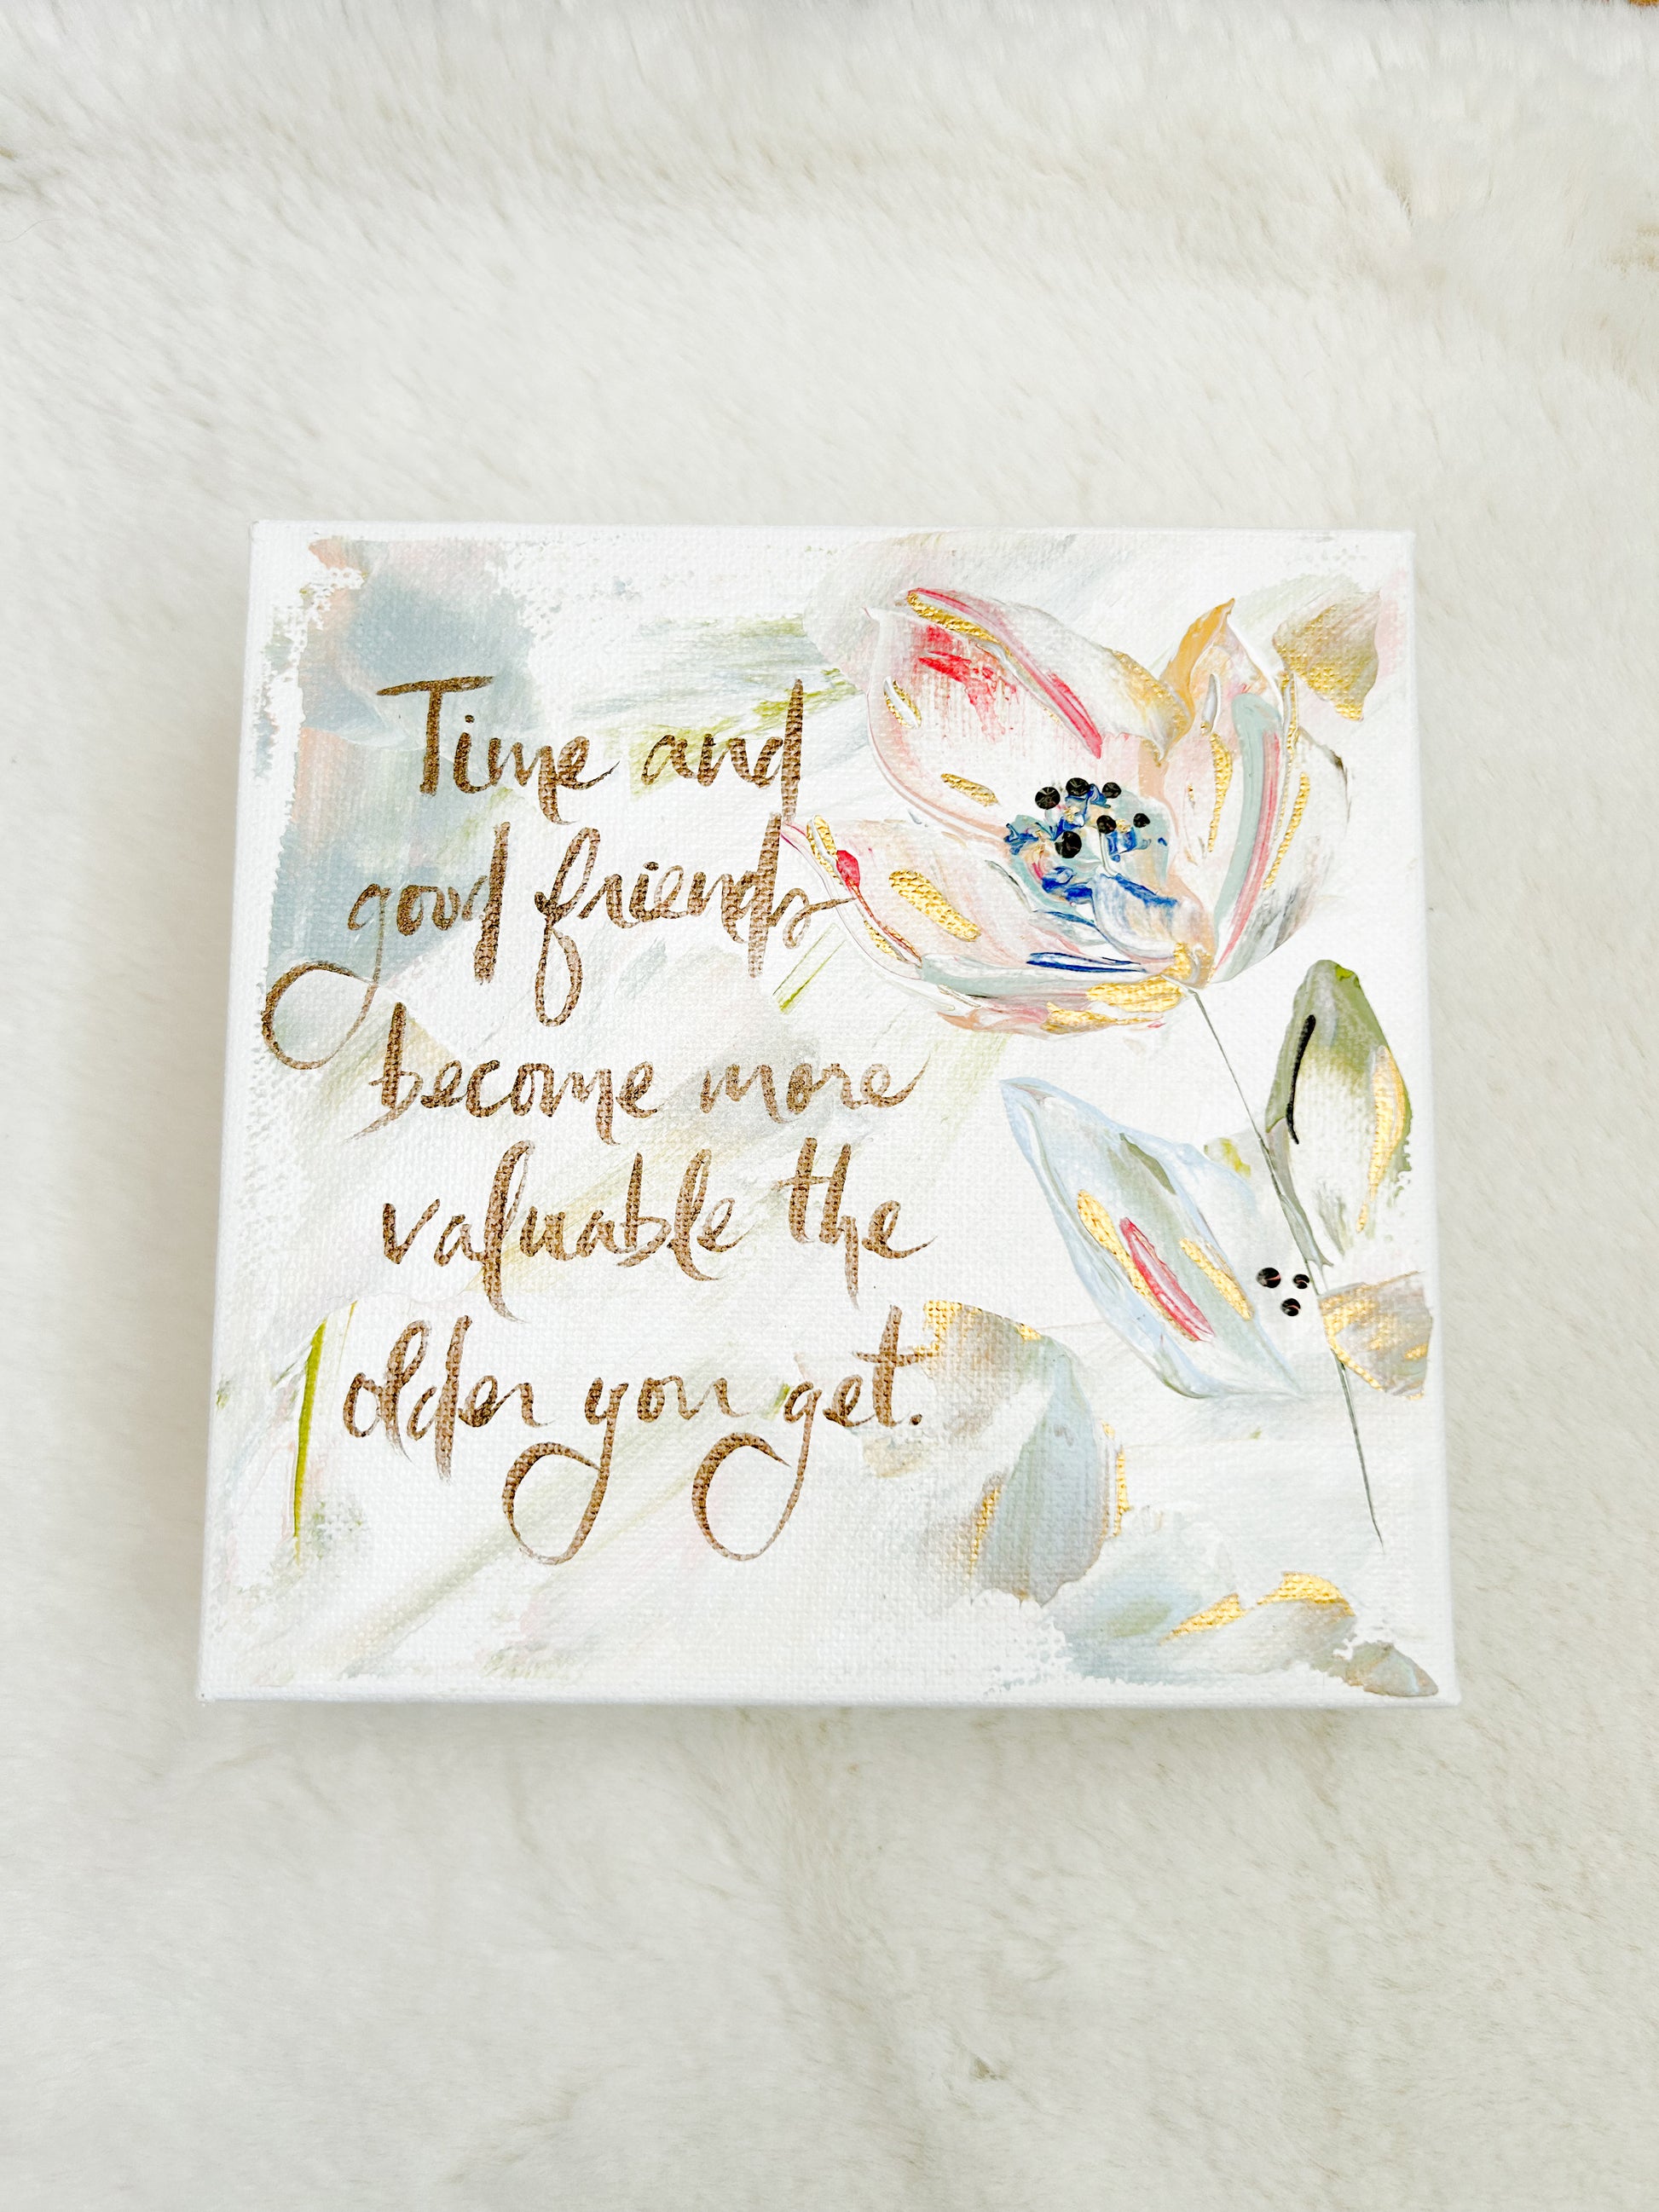 Time and
good friends
become more
valuable the
older you get.